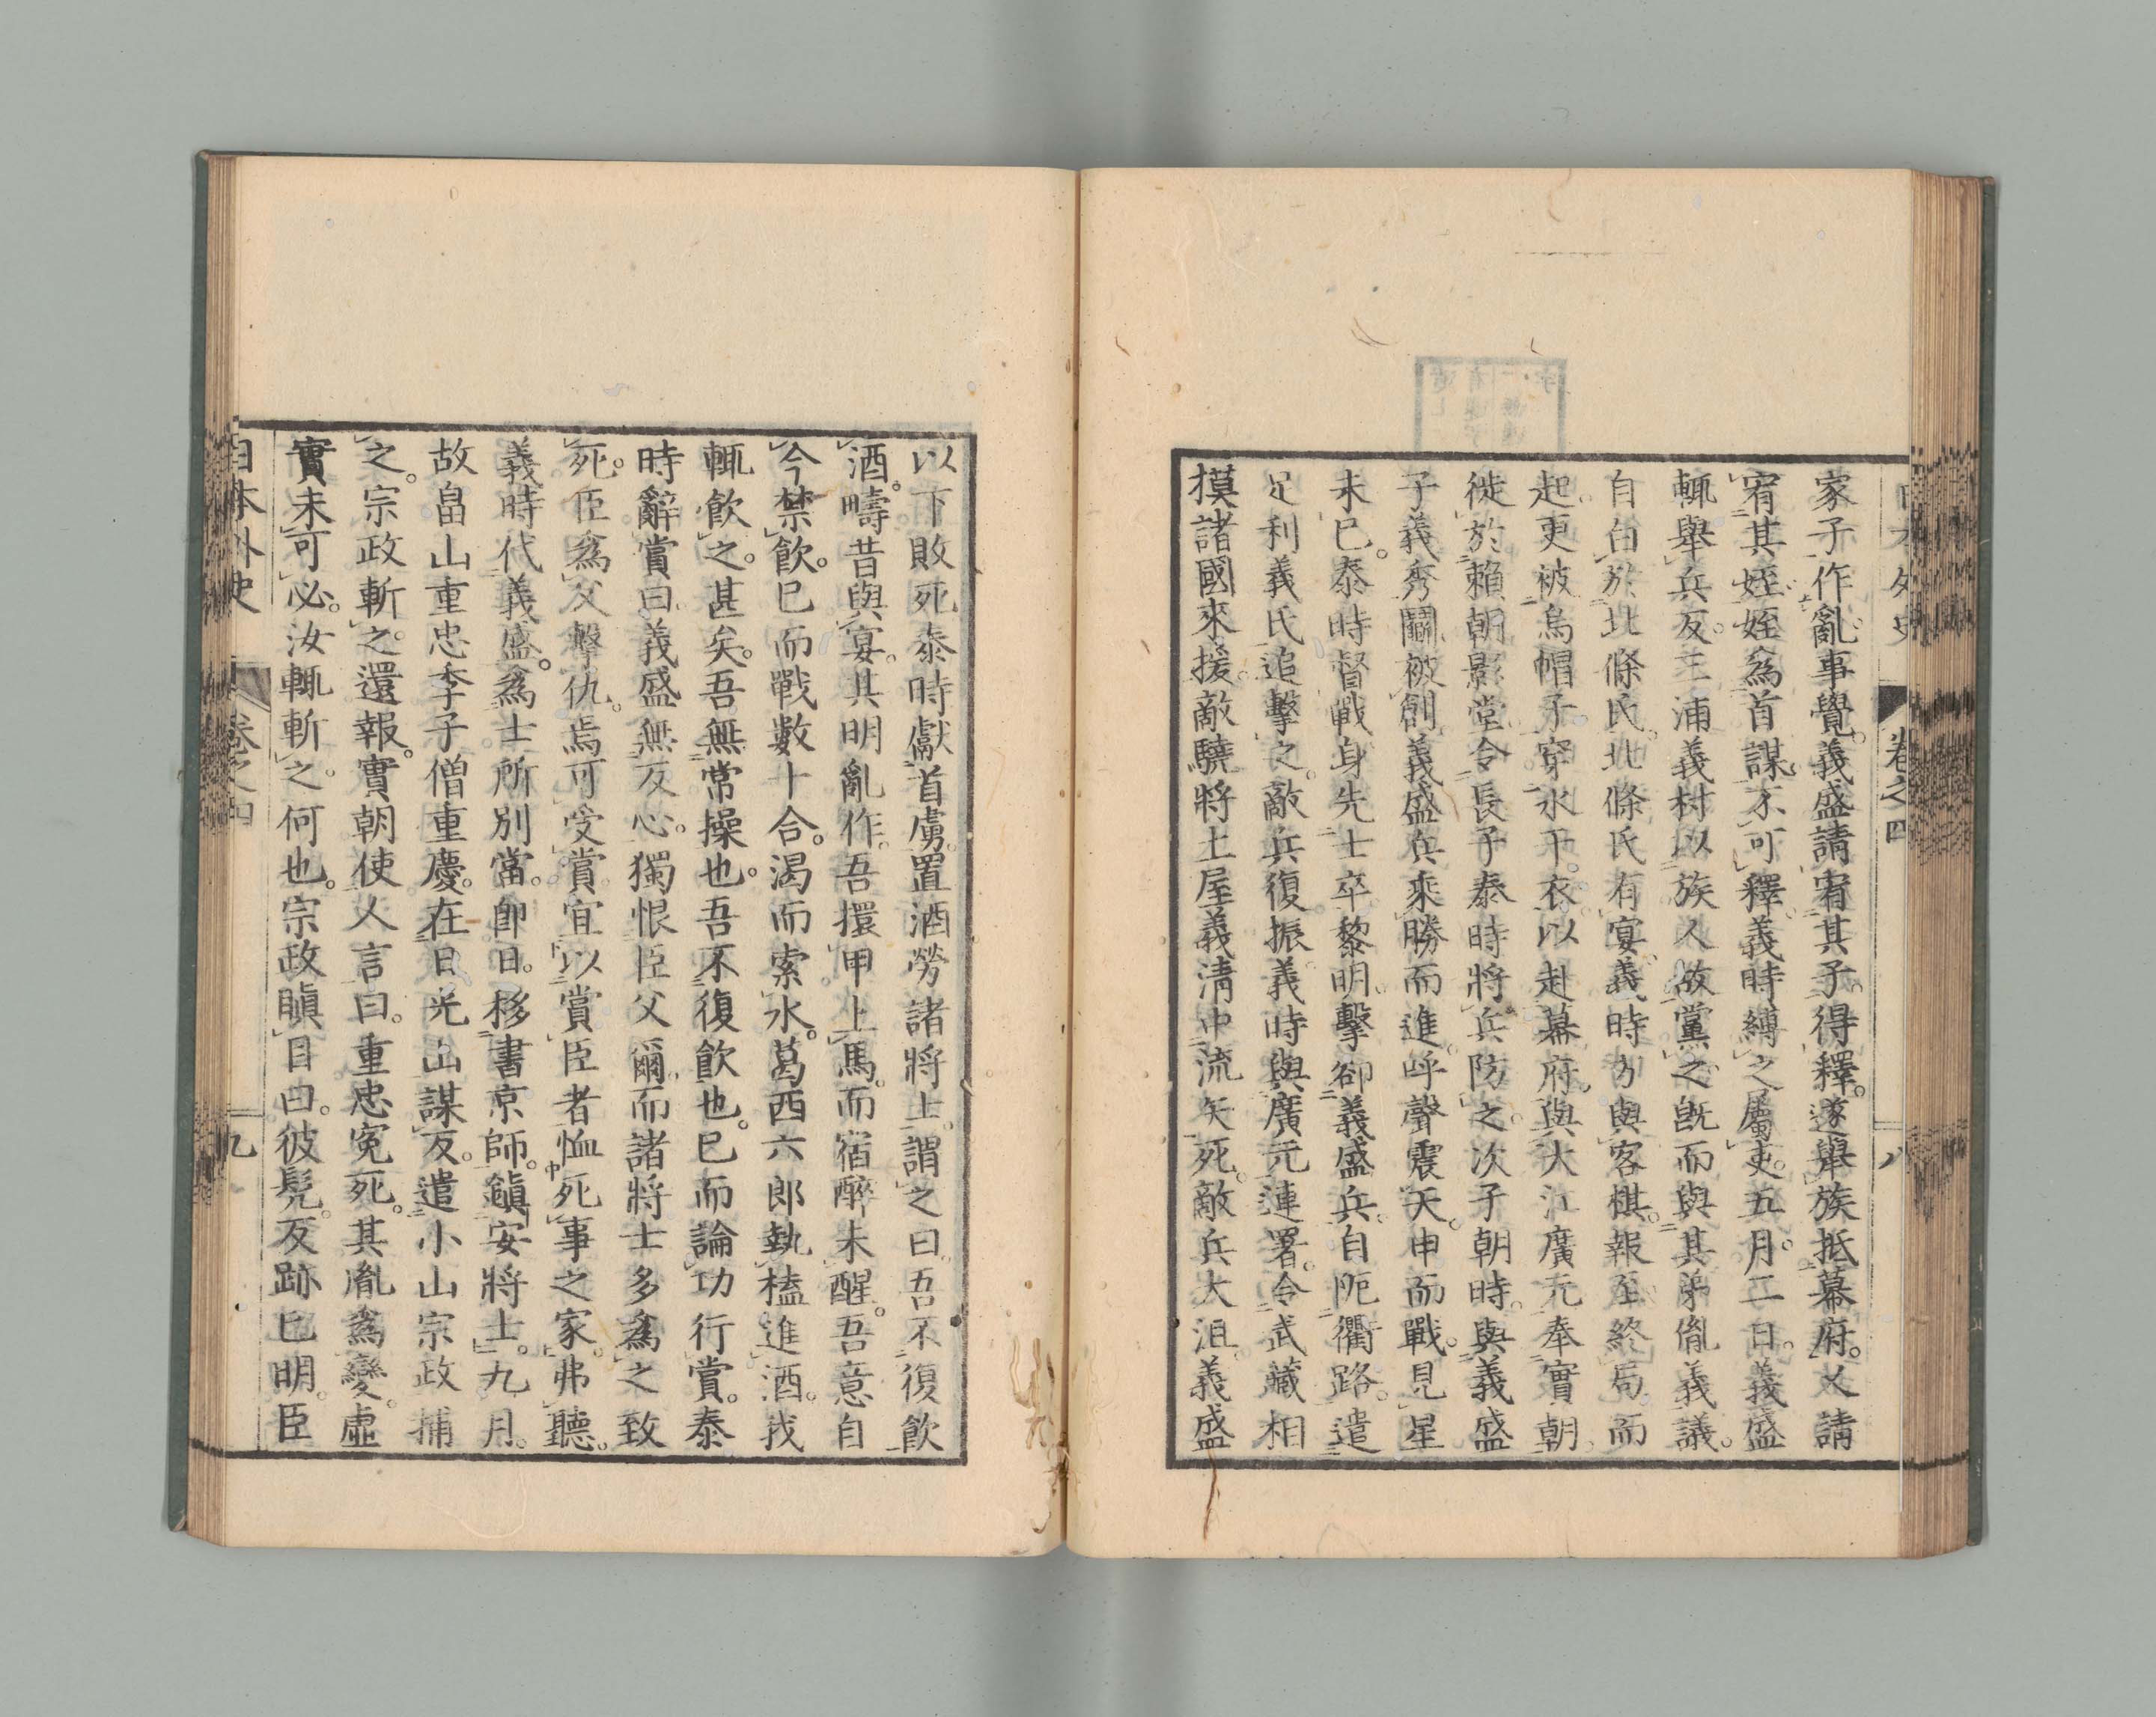 日本外史 卷之四 八
家子作亂事覺。義盛請宥其子。得釋。遂擧族抵幕府。乂請
宥其姪。姪爲首謀。不可釋。義時縛之屬吏。五月二日。義盛
輒舉兵反。三浦義村以族人故黨之。既而與其弟胤義議。
自白於北條氏。北條氏有宴。義時方與客棋。報至。終局而
起。更被烏帽子。穿水干。衣以赴幕府。與大江廣元奉實朝。
徙於賴朝影堂。令長子泰時將兵防之。次子朝時。與義盛
子義秀鬭被創。義盛兵乘勝而進。呼聲震天。申而戰。見星
未已。泰時督戰。身先士卒。黎明。擊卻義盛兵。自阨衢路。遣
足利義氏追擊之。敵兵復振。義時與廣元連署。令武藏相
摸諸國來援。敵驍將土屋義清中流矢死。敵兵大沮。義盛
以下敗死。泰時獻首虜。置酒勞諸將士。謂之曰。吾不復飮
酒。疇昔與宴。其明亂作。吾擐甲上馬。而宿醉未醒。吾意自
今禁飮。已而戰數十合。渴而索水。葛西六郎執榼進酒。我
輒飮之。甚矣。吾無常操也。吾不復飮也。已而論功行賞。泰
時辭賞曰。義盛無反心。獨恨臣父爾。而諸將士多爲之致
死。臣爲父擊仇。焉可受賞。宜以賞臣者恤死事之家。弗聽。
義時代義盛。爲士所別當。卽日。移書京師。鎭安將士。九月。
故畠山重忠季子僧重慶。在日光山謀反。遣小山宗政捕
之。宗政斬之。還報。實朝使人言曰。重忠寃死。其胤爲變。虛
實未可必。汝輒斬之。何也。宗政瞋目曰。彼髡。反跡已明。臣
日本外史 卷之四 九